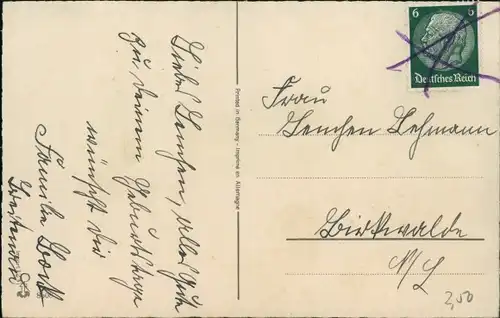 Liebes Lenchen, alles Gute
zu Deinem Geburtstage
wünscht Dir
Familie
Printed in Germany - Imprimé en Allemagne
6 6
Deutsches Reich
Frau
Lenchen Lehmann
Birkwalde
N/L
3,50